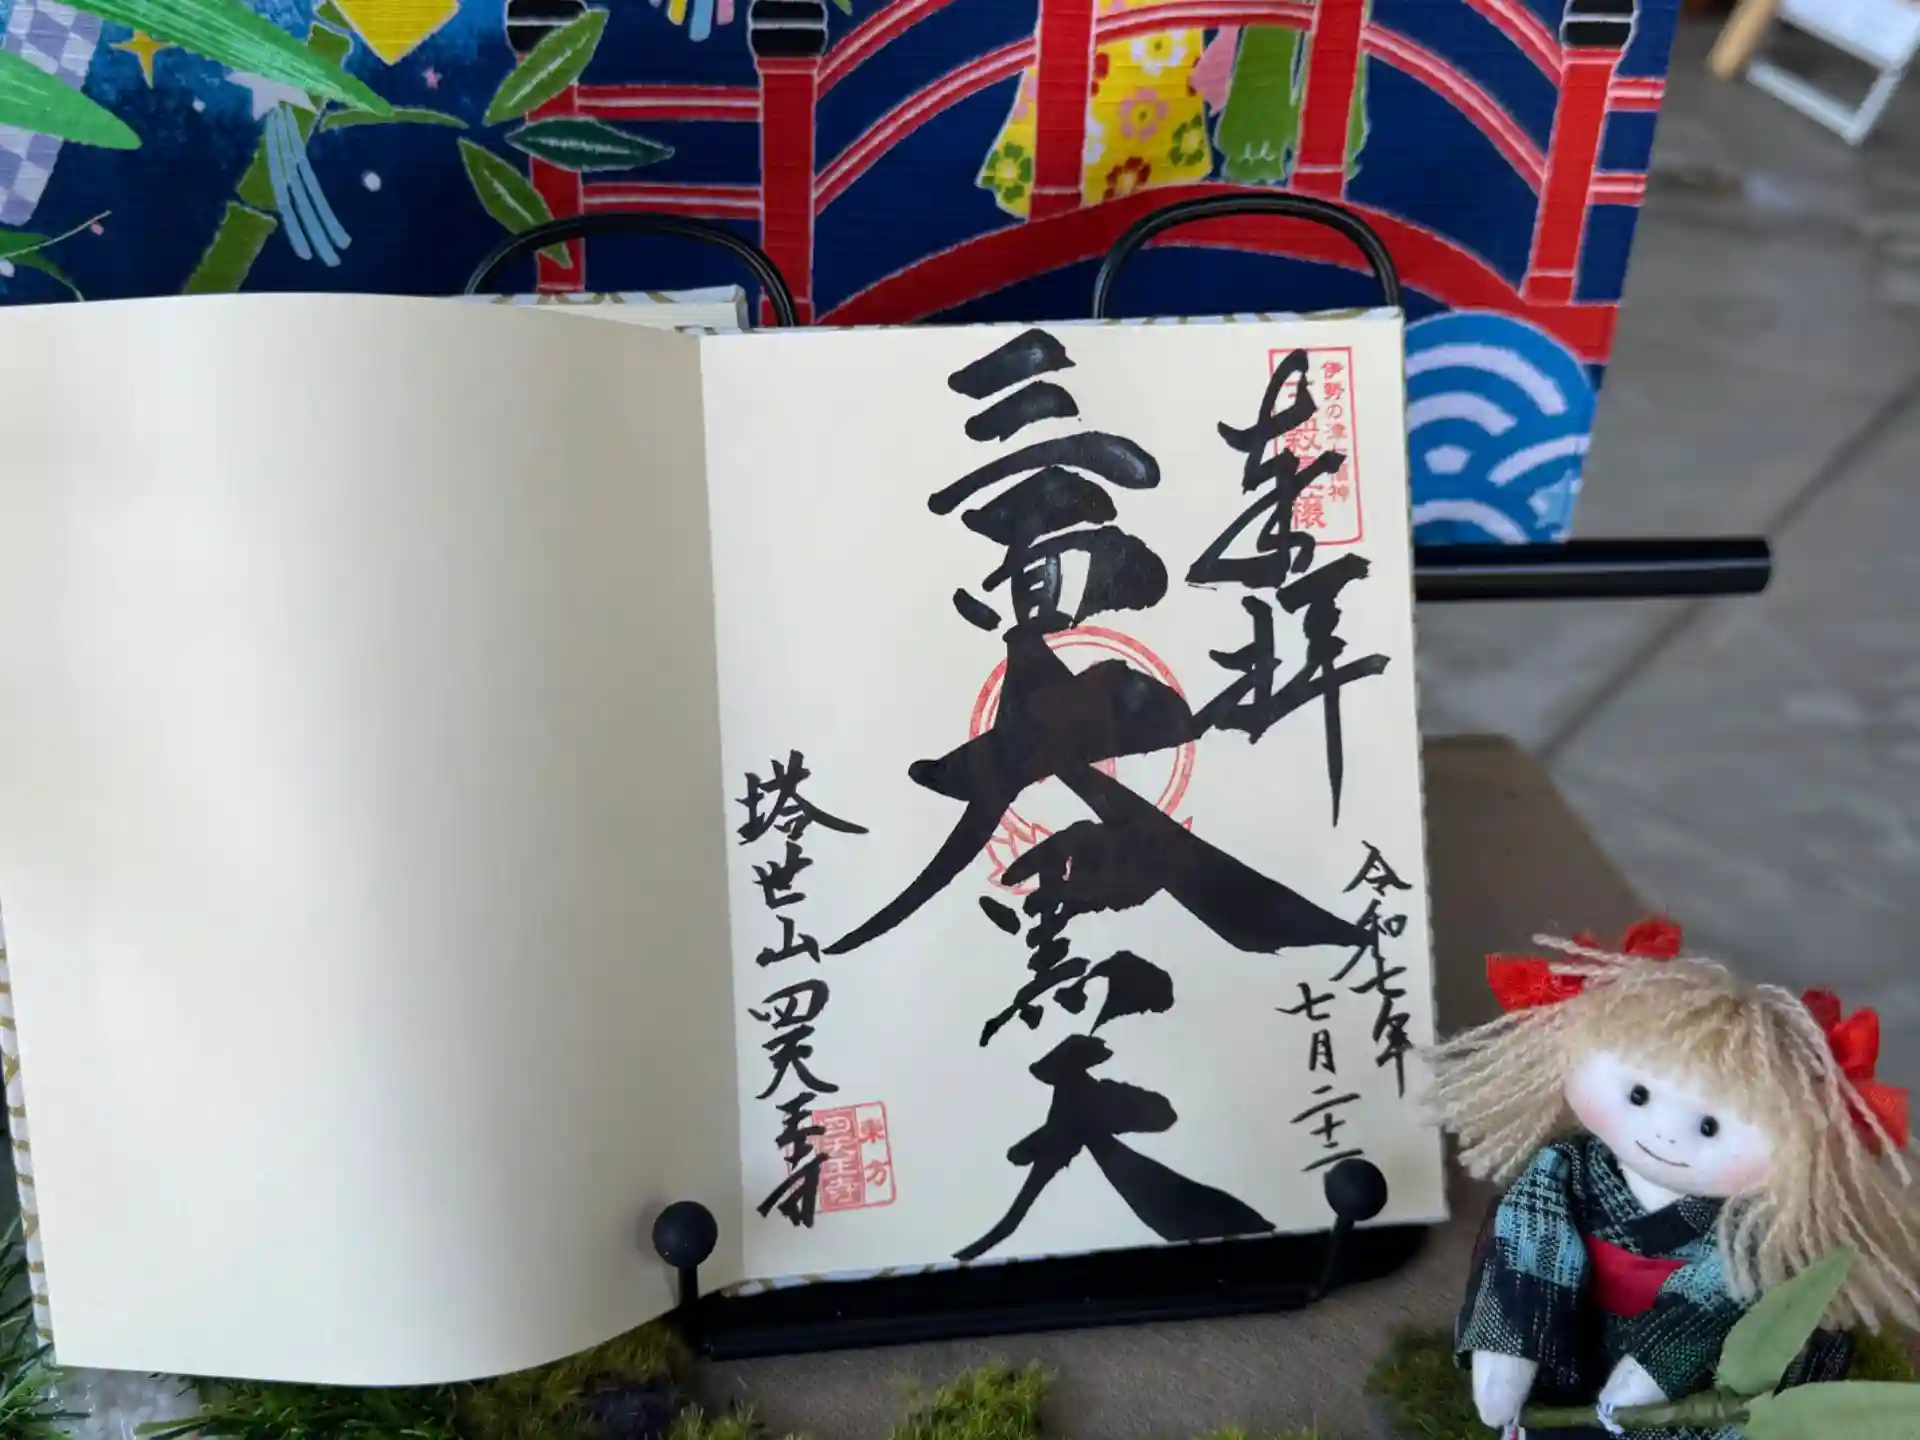 伊勢の津七福神
奉拝
令和七年
七月二十二
三面大黒天
塔世山四天王寺
東方
四天王寺